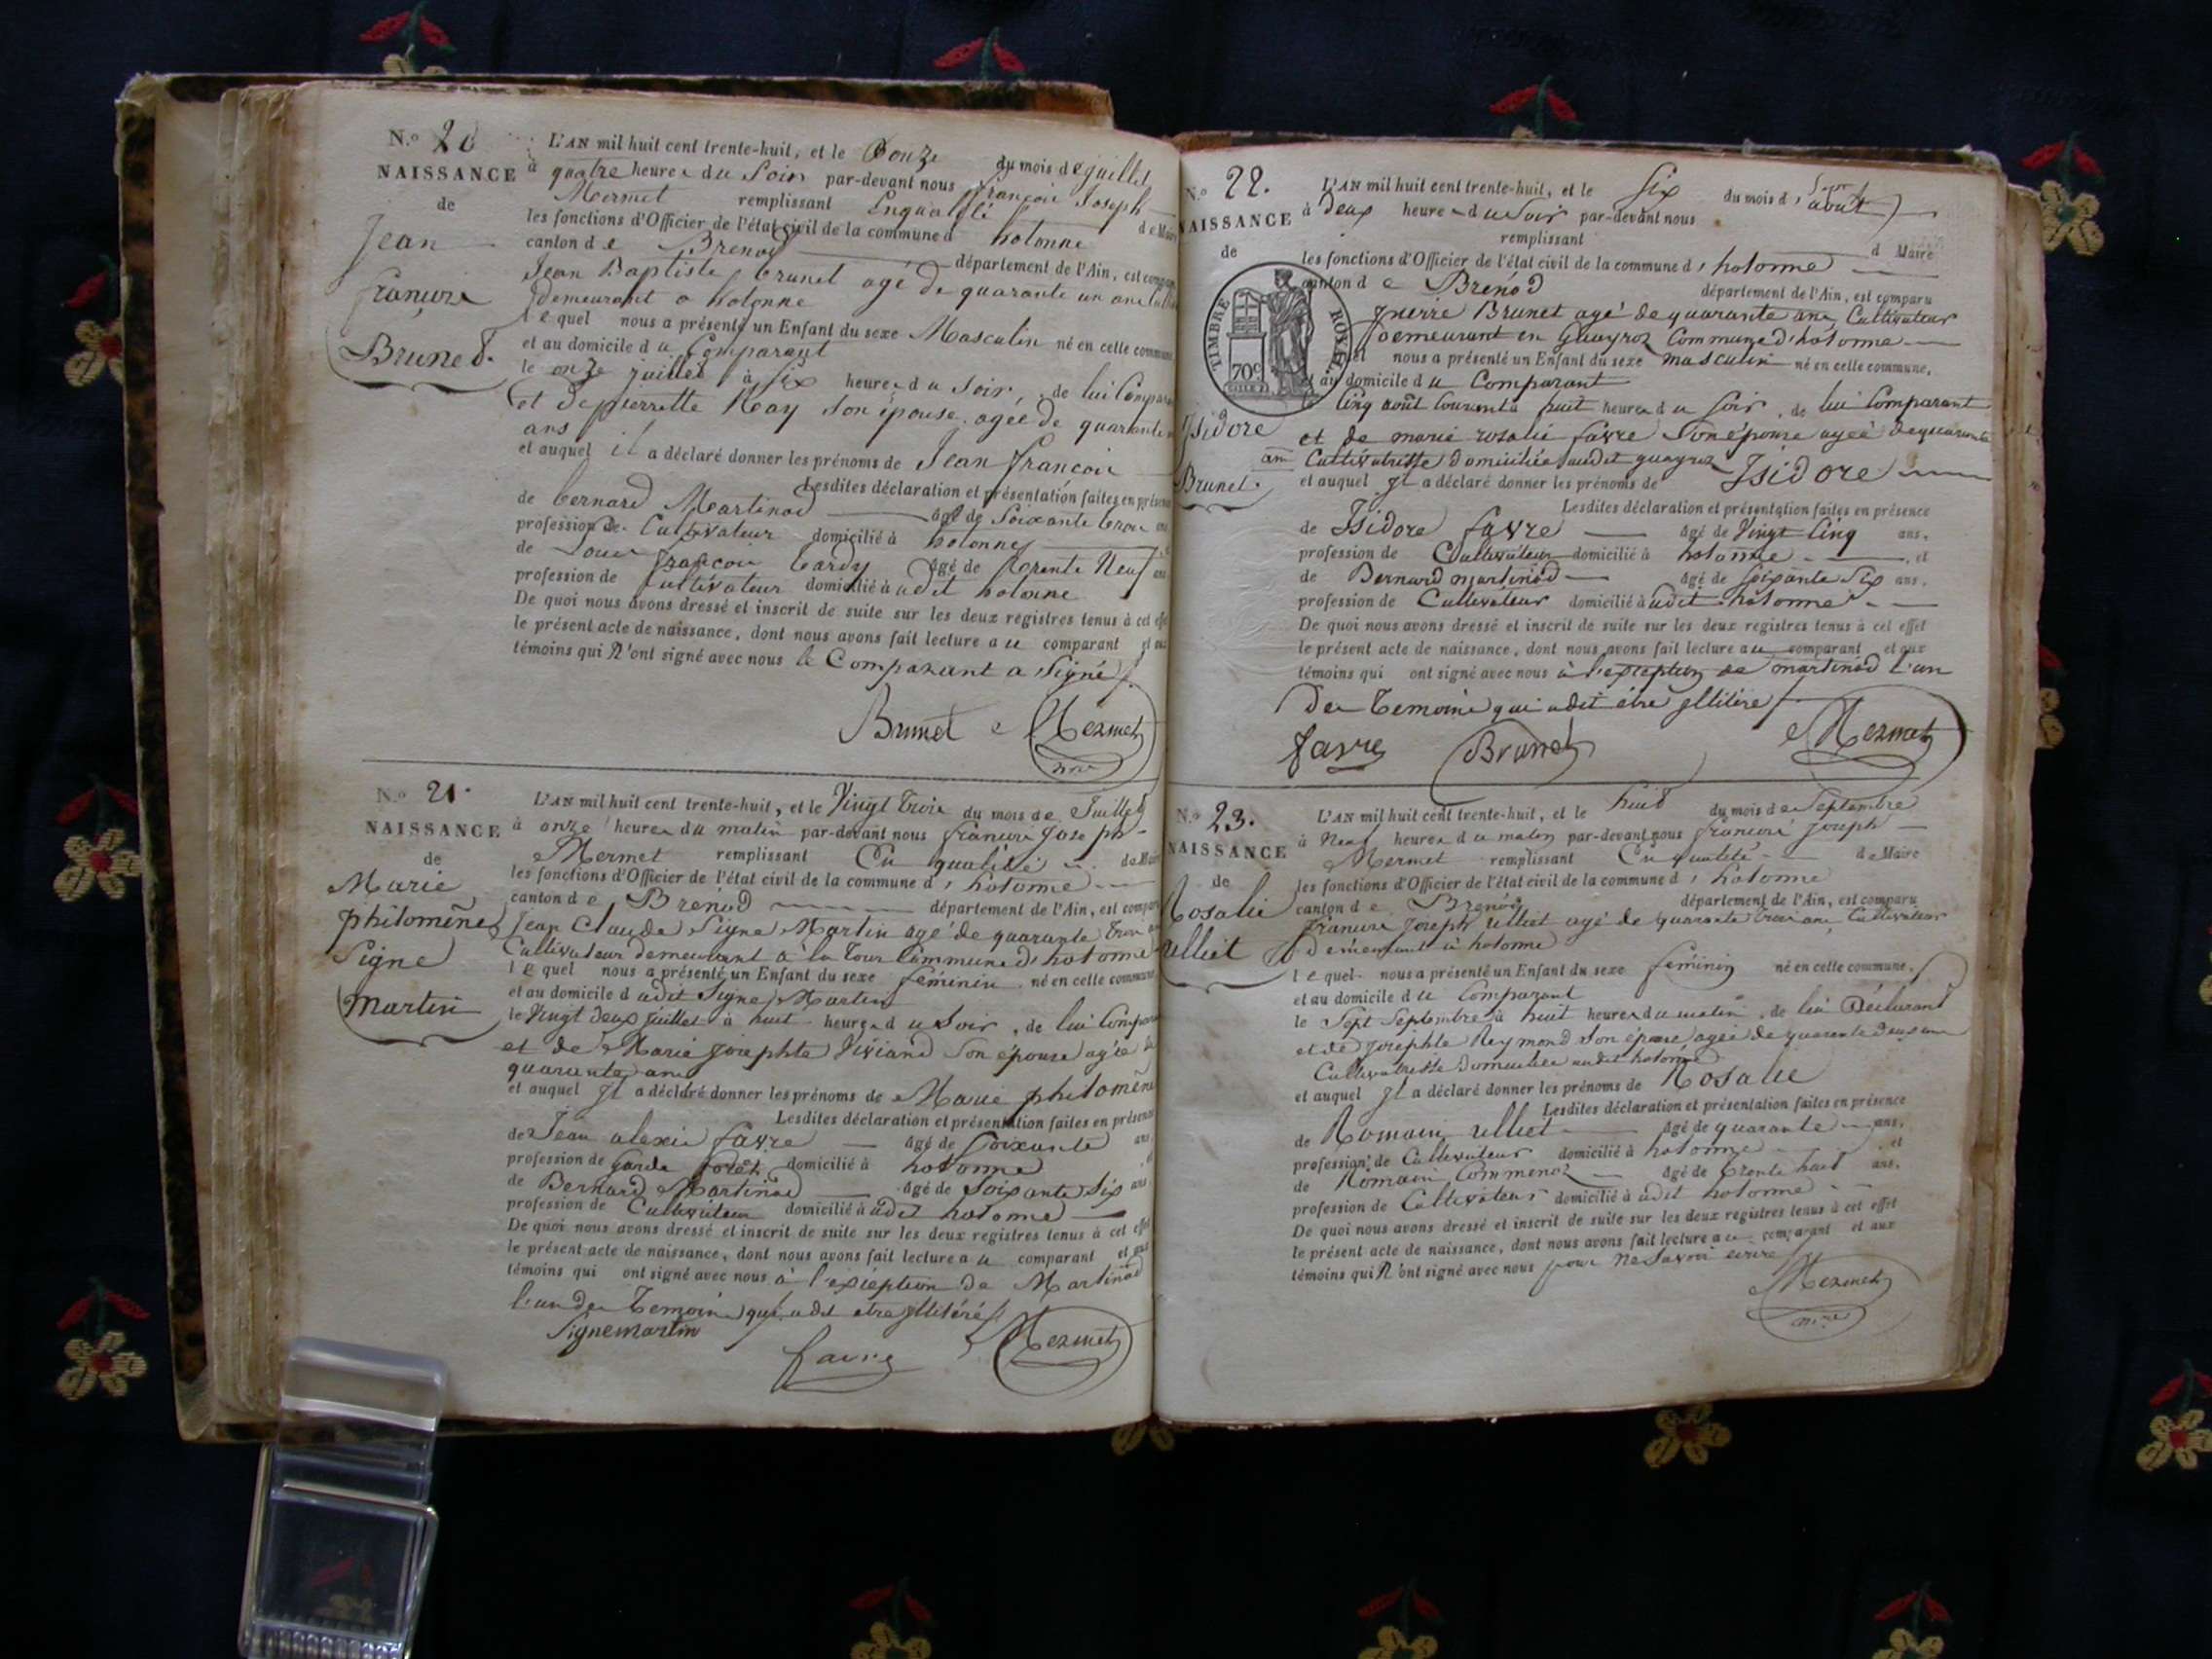 N.º 20
NAISSANCE
de
Jean
françois
Brunet.
L'AN mil huit cent trente-huit, et le Douze du mois de juillet
à quatre heures du Soir par-devant nous françois Joseph
Mermet remplissant Enqualité de Maire
les fonctions d'Officier de l'état civil de la commune d hotonne
canton de Brenod département de l'Ain, est comparu
Jean Baptiste brunet agé de quarante un ans
demeurant a hotonne
lequel nous a présenté un Enfant du sexe Masculin né en celle commune
et au domicile du Comparant
le onze juillet à six heures du Soir, de lui Comparant
et de pierrette Ray son épouse agée de quarante
ans
et auquel il a déclaré donner les prénoms de Jean françois
Lesdites déclaration et présentation faites en présence
de bernard Martinod âgé de Soixante ans
profession de Cultivateur domicilié à hotonne
de Louis françois bardy âgé de trente Neuf ans
profession de Cultivateur domicilié à udit hotonne
De quoi nous avons dressé et inscrit de suite sur les deux registres tenus à cet effet
le présent acte de naissance, dont nous avons fait lecture au comparant et aux
témoins qui N'ont signé avec nous le Comparant a Signé
Brunet Mermet
N.º 21.
NAISSANCE
de
Marie
philomène
Signe
Martin
L'AN mil huit cent trente-huit, et le Vingt trois du mois de Juillet
à onze heures du matin par-devant nous françois Joseph
Mermet remplissant En qualité de Maire
les fonctions d'Officier de l'état civil de la commune d'hotonne
canton de Brénod département de l'Ain, est comparu
Jean Claude Signe Martin agé de quarante trois ans
Cultivateur demeurant à la tour Commune d'hotonne
lequel nous a présenté un Enfant du sexe féminin né en celle commune
et au domicile dudit Signe Martin
le Vingt deux juillet à huit heures du Soir, de lui Comparant
et de Marie josephte Viviand Son épouse agée de
quarante ans
et auquel Jl a déclaré donner les prénoms de Marie philomène
Lesdites déclaration et présentation faites en présence
de Jean alexis favre âgé de Soixante ans
profession de Garde forêt domicilié à hotonne
de Bernard Martinod âgé de Soixante Six ans
profession de Cultivateur domicilié à udit hotonne
De quoi nous avons dressé et inscrit de suite sur les deux registres tenus à cet effet
le présent acte de naissance, dont nous avons fait lecture au comparant et aux
témoins qui ont signé avec nous à l'exception de Martinod
l'un des temoins qui a dit etre jllitéré
Signemartin favre Mermet
N.º 22.
NAISSANCE
de
TIMBRE ROYAL
70c
Isidore
Brunet.
L'AN mil huit cent trente-huit, et le Six du mois d'août
à deux heures du Soir par-devant nous
remplissant d Maire
les fonctions d'Officier de l'état civil de la commune d'hotonne
canton de Brénod département de l'Ain, est comparu
pierre Brunet agé de quarante ans Cultivateur
demeurant en Commune d'hotonne
nous a présenté un Enfant du sexe masculin né en celle commune,
au domicile du Comparant
Cinq août Courant à huit heures du Soir, de lui Comparant
et de marie rosalie favre Son épouse agée de quarante
ans Cultivatrisse domiciliée audit
et auquel Jl a déclaré donner les prénoms de Isidore
Lesdites déclaration et présentation faites en présence
de Isidore favre âgé de Vingt Cinq ans,
profession de Cultivateur domicilié à hotonne, et
de Bernard martinod âgé de Soixante Six ans,
profession de Cultivateur domicilié à udit hotonne
De quoi nous avons dressé et inscrit de suite sur les deux registres tenus à cet effet
le présent acte de naissance, dont nous avons fait lecture au comparant et aux
témoins qui ont signé avec nous à l'exception de martinod l'un
des temoins qui a dit être jllitéré
favre Brunet Mermet
N.º 23.
NAISSANCE
de
Rosalie
ulliet
L'AN mil huit cent trente-huit, et le huit du mois de Septembre
à Neuf heures du matin par-devant nous françois joseph
Mermet remplissant En qualité de Maire
les fonctions d'Officier de l'état civil de la commune d'hotonne
canton de Brénod département de l'Ain, est comparu
françois joseph ulliet agé de quarante trois ans, Cultivateur
demeurant à hotonne
lequel nous a présenté un Enfant du sexe féminin né en celle commune,
et au domicile du Comparant
le Sept Septembre à huit heures du matin, de lui Déclarant
et de josephte Reymond Son épouse agée de quarante deux ans
Cultivatrisse domiciliée audit hotonne
et auquel Jl a déclaré donner les prénoms de Rosalie
Lesdites déclaration et présentation faites en présence
de Romain ulliet âgé de quarante ans,
profession de Cultivateur domicilié à hotonne, et
de Romain âgé de trente huit ans,
profession de Cultivateur domicilié à udit hotonne
De quoi nous avons dressé et inscrit de suite sur les deux registres tenus à cet effet
le présent acte de naissance, dont nous avons fait lecture au comparant et aux
témoins qui N'ont signé avec nous pour Ne Savoir ecrire
Mermet